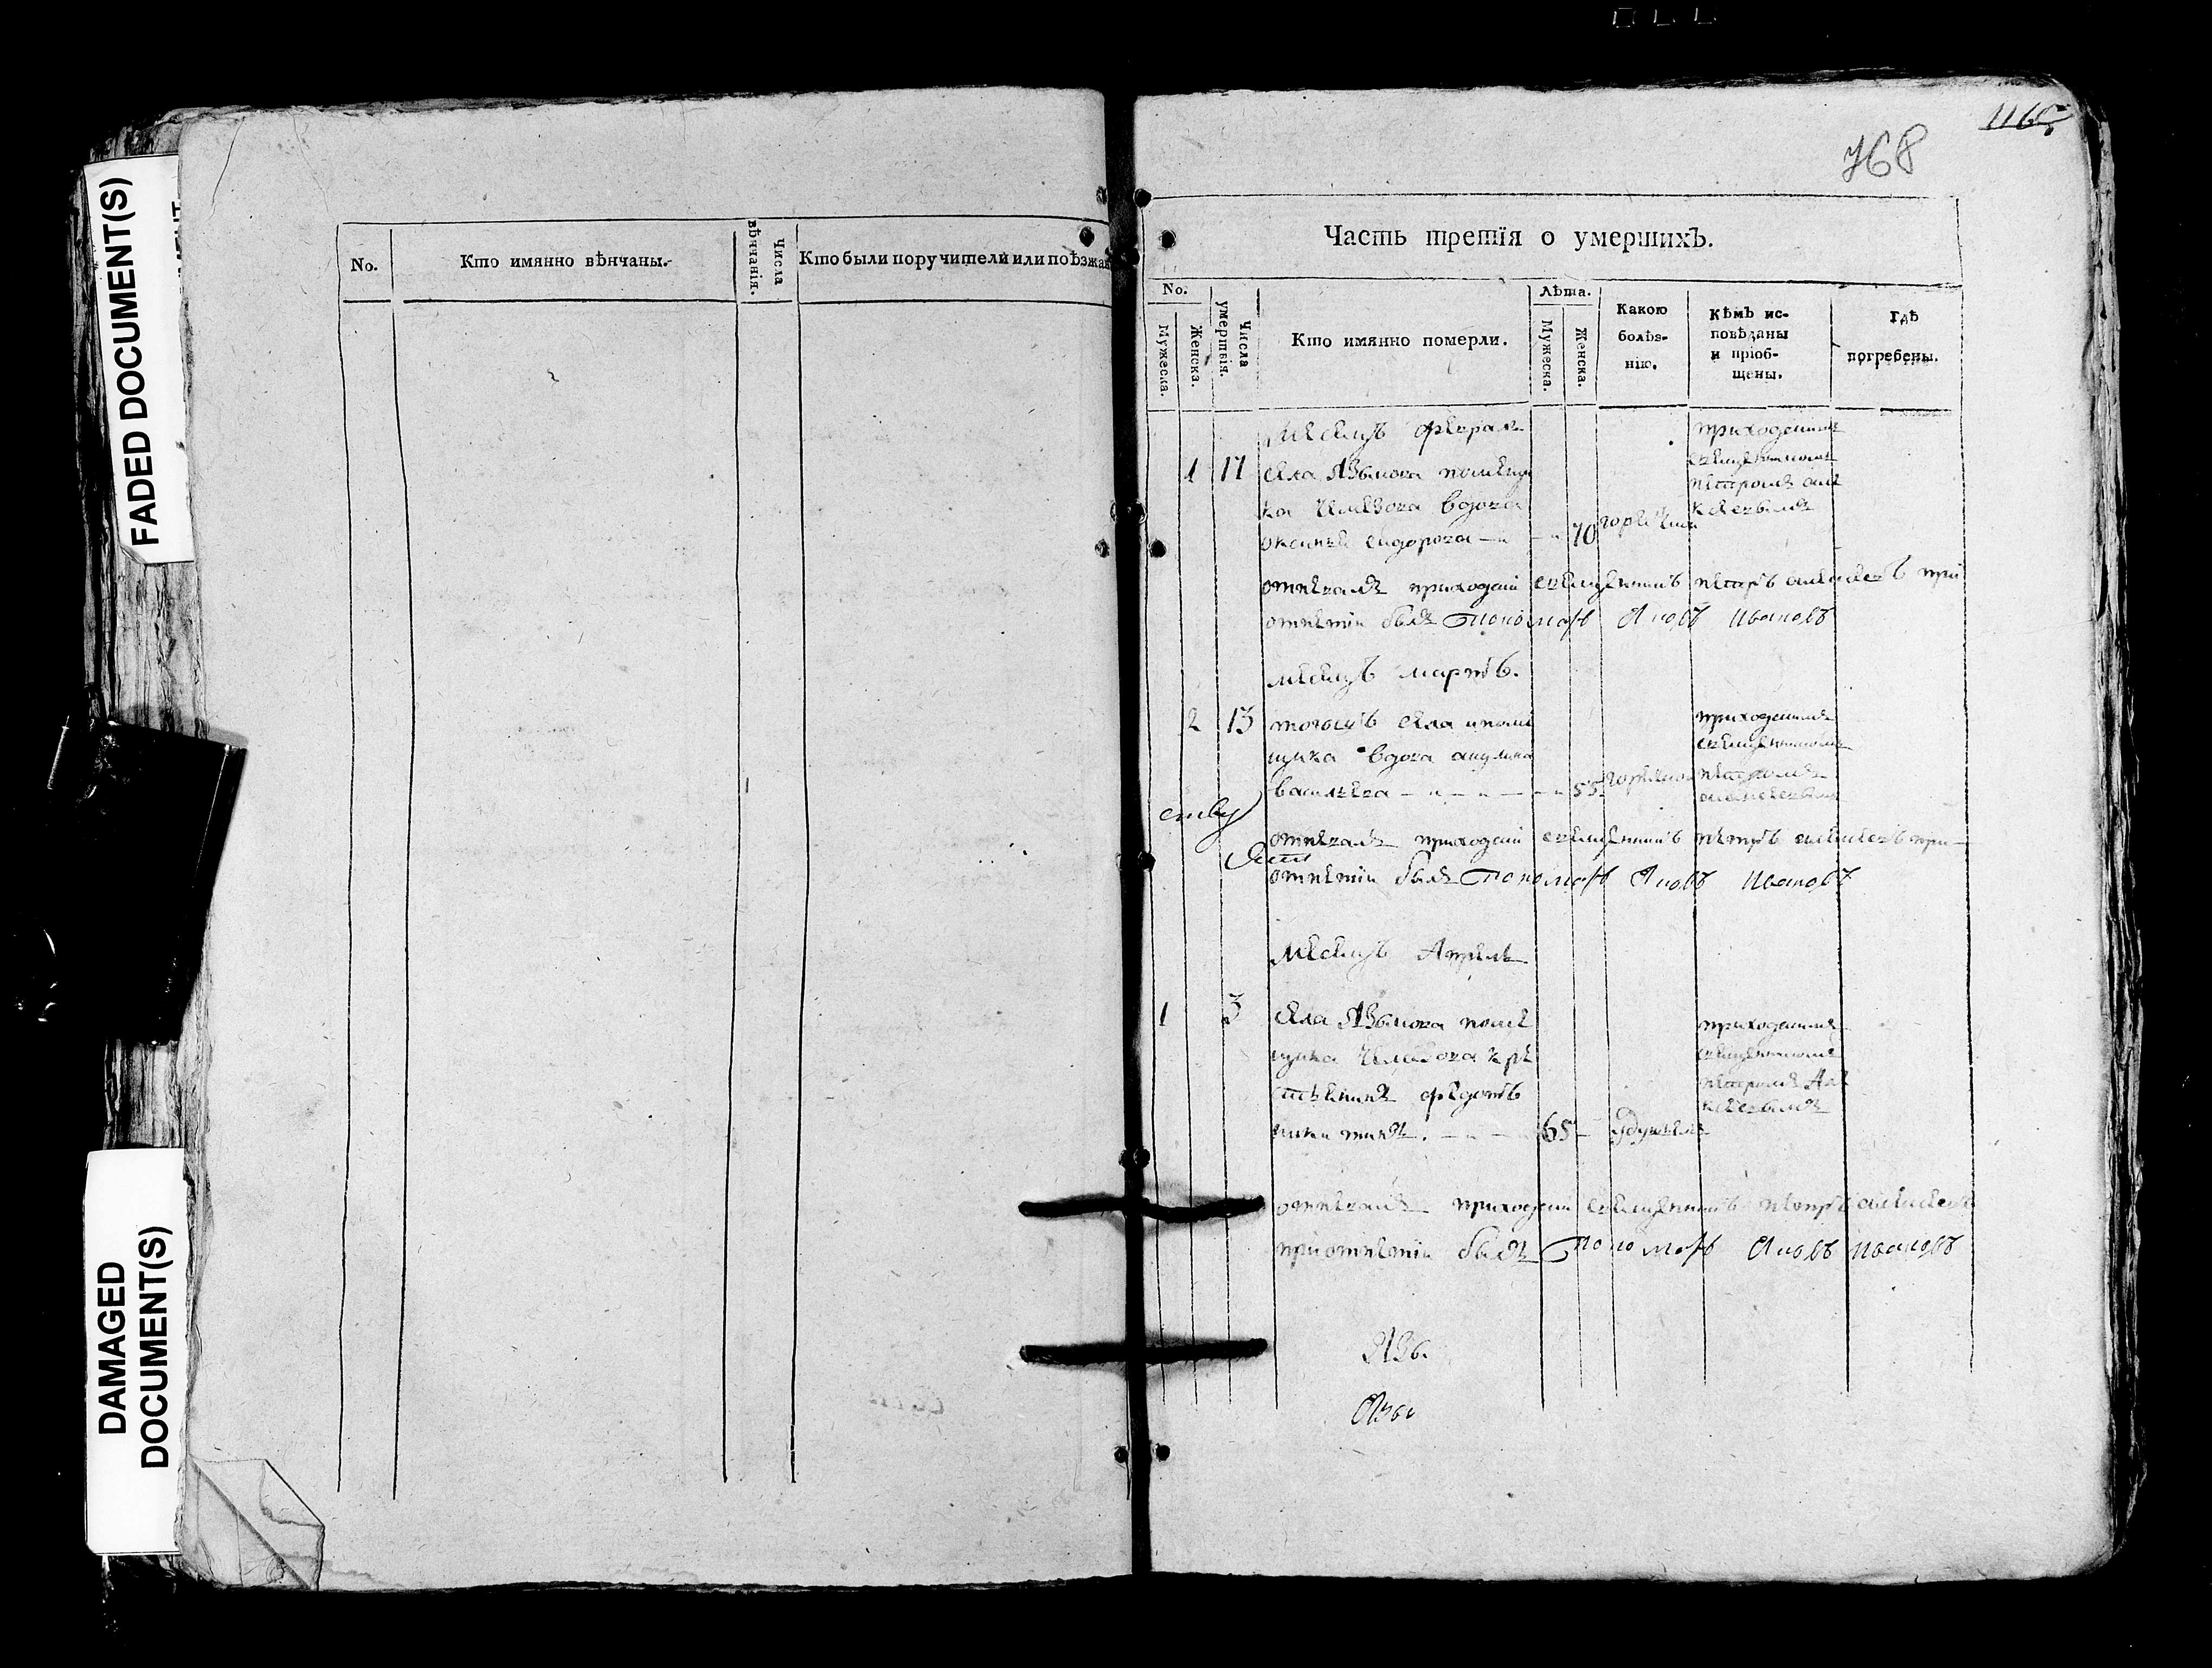 FADED DOCUMENT(S)
DAMAGED
DOCUMENT(S)
No.
Кто имянно вѣнчаны.
Числа
вѣнчанія.
Кто были поручители или поѣзжан
1165
768
Часть третія о умершихъ.
No.
Мужеска.
Женска.
Числа
умертвія.
Кто имянно померли.
Лѣта.
Мужеска.
Женска.
Какою
болѣз-
нію.
Кѣмъ ис-
повѣданы
и пріоб-
щены.
Гдѣ
погребены.
месецъ февраль
1 17 села Языкова помещи
ка вдова
оксинья сидорова 70
приходскимъ
священникомъ
петромъ але
ксеевымъ
отпевалъ приходский священникъ петръ алексеевъ при
отпетии былъ Пономарь Яковъ Ивановъ
месецъ мартъ.
2 13 тогожъ села и поме
щика вдова акулина
васильева 55
приходскимъ
священникомъ
петромъ
алексеевымъ
отпевалъ приходский священникъ петръ алексеевъ при
отпетии былъ Пономарь Яковъ Ивановъ
месецъ Апрель
1 3 села Языкова поме
щика кре
стьянинъ федотъ
никитинъ. 65
приходскимъ
священникомъ
петромъ Але
ксеевымъ
отпевалъ приходский священникъ петръ алексеевъ
при отпетии былъ Пономарь Яковъ Ивановъ